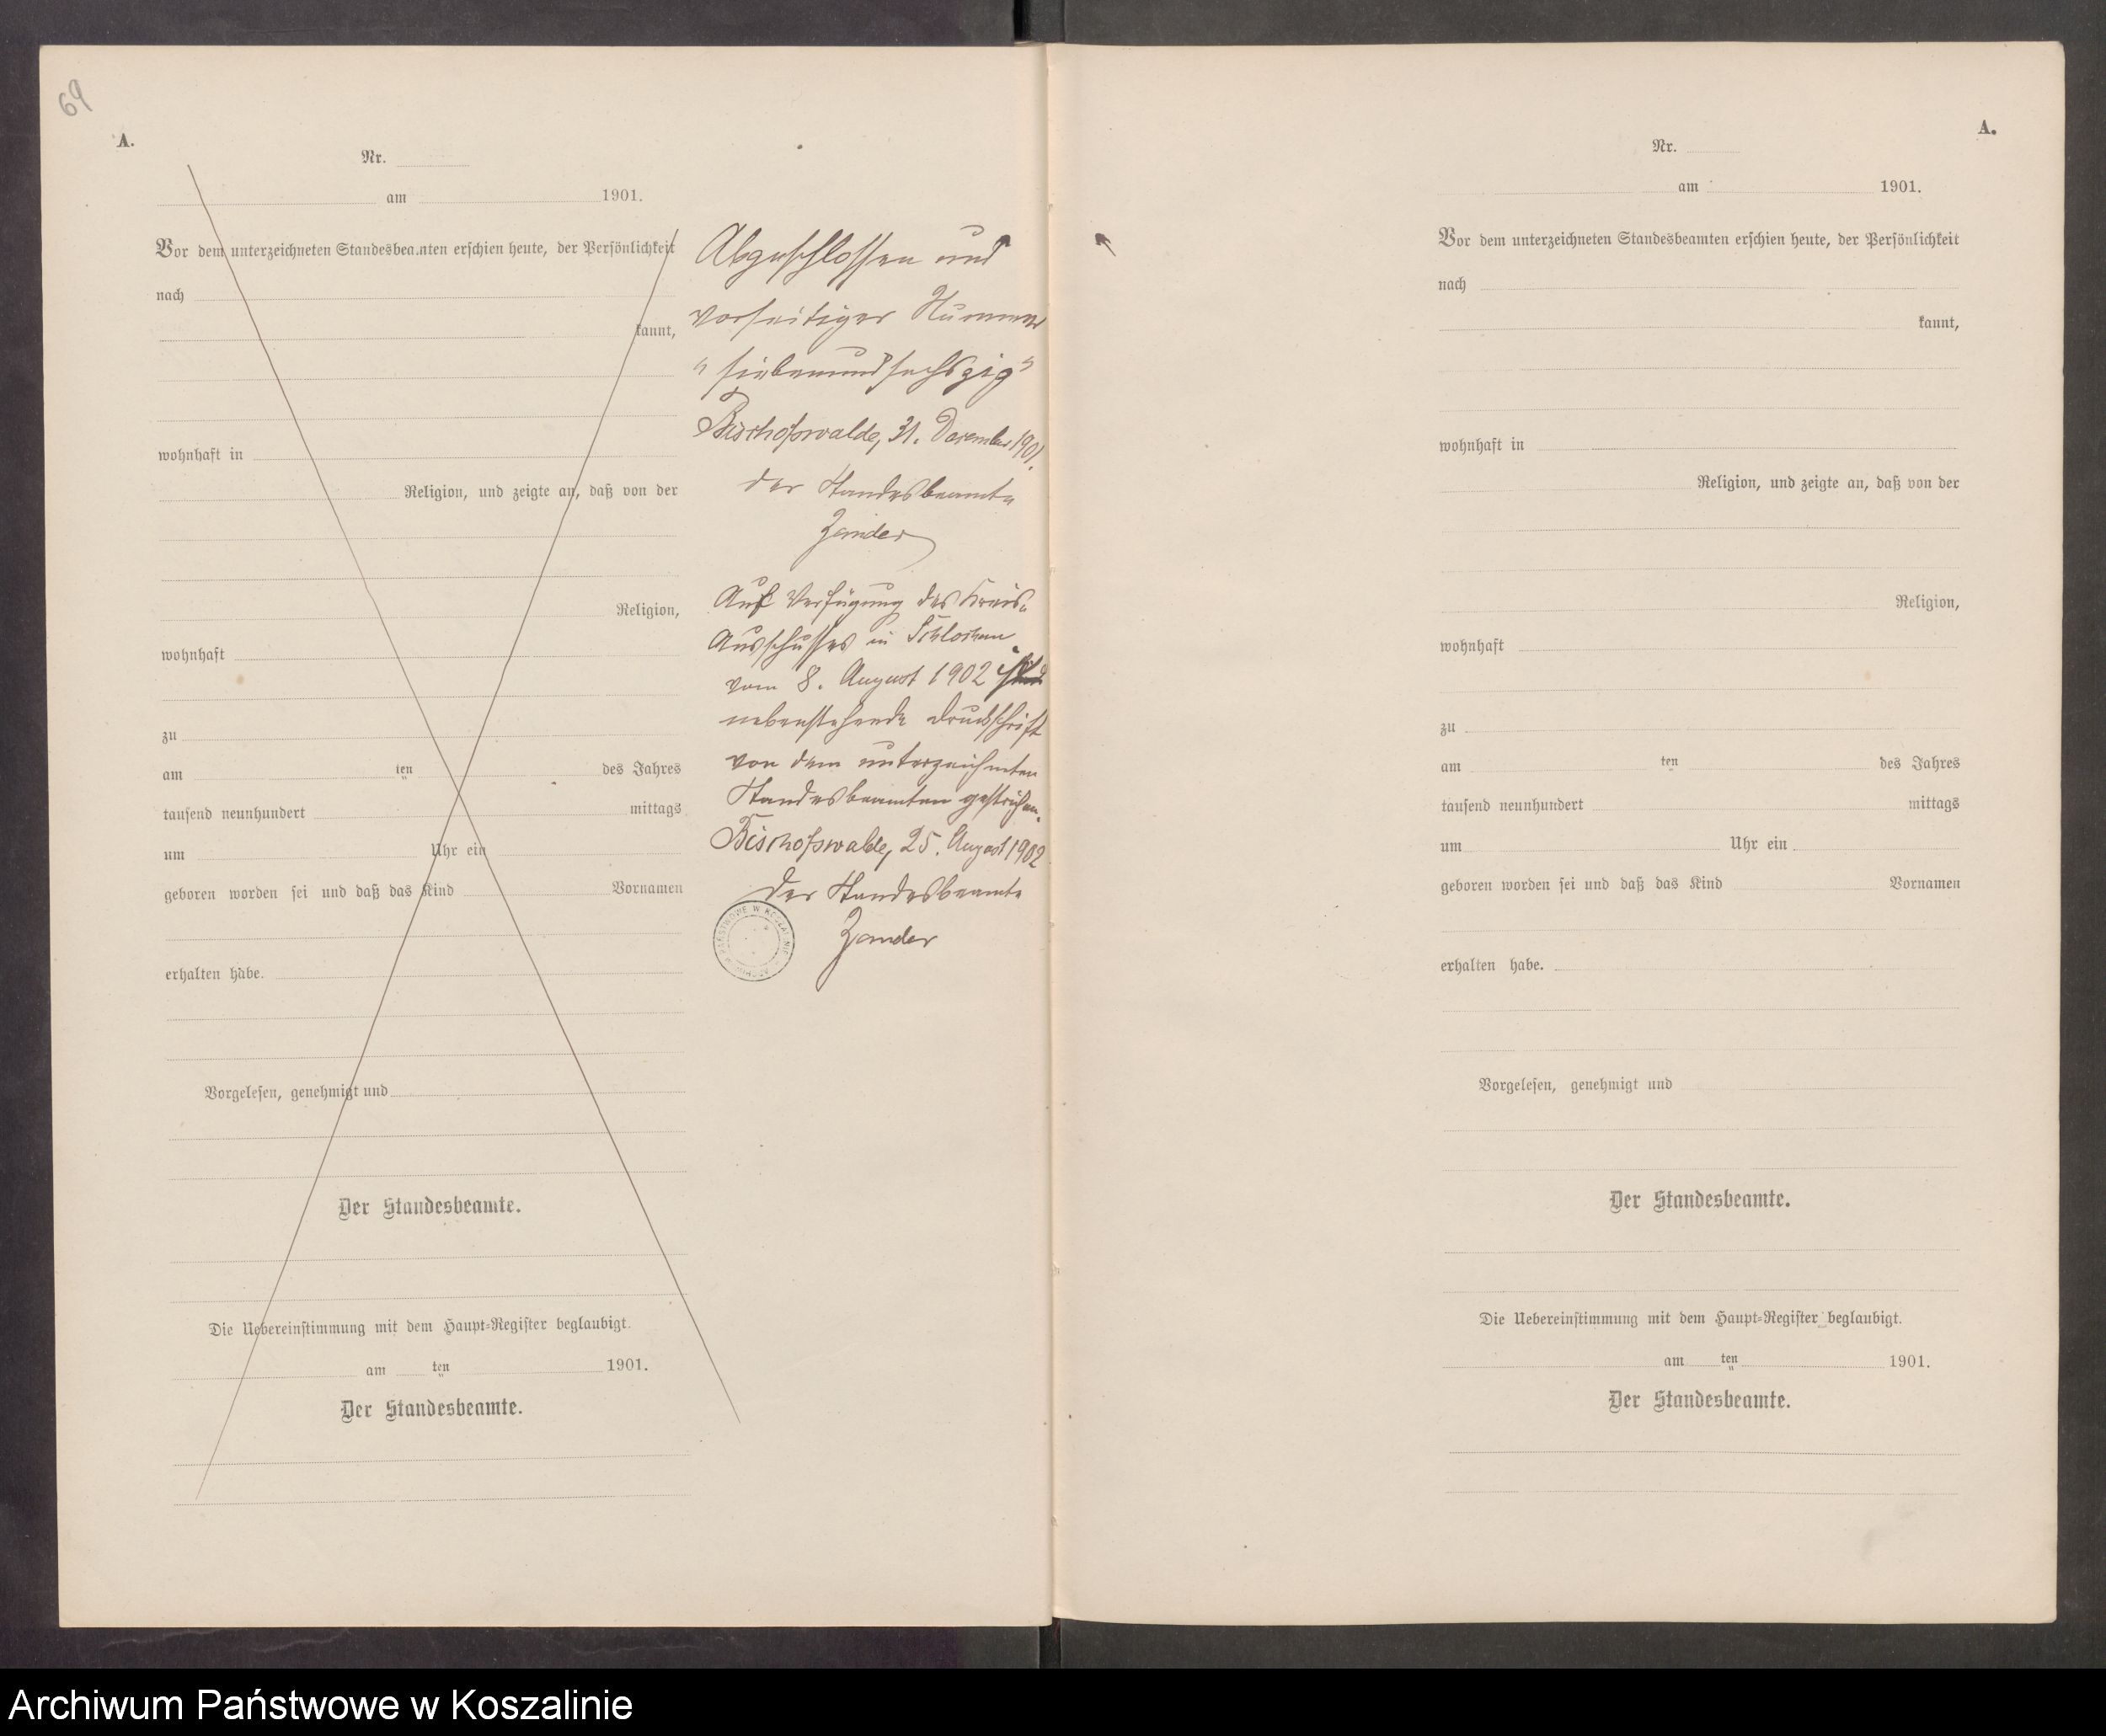 69
A.
Nr.
am 1901.
Vor dem unterzeichneten Standesbeamten erschien heute, der Persönlichkeit
nach
kannt,
wohnhaft in
Religion, und zeigte an, daß von der
Religion,
wohnhaft
zu
am ten des Jahres
tausend neunhundert mittags
um Uhr ein
geboren worden sei und daß das Kind Vornamen
erhalten habe.
Vorgelesen, genehmigt und
Der Standesbeamte.
Die Uebereinstimmung mit dem Haupt-Register beglaubigt.
am ten 1901.
Der Standesbeamte.
Abgeschlossen und
vorseitiger Nummer
"siebenundsechszig"
Bischofswalde, 31. Dezember 1901.
Der Standesbeamte
Zander
Auf Verfügung des Kreis-
Ausschusses in Schlochau
vom 8. August 1902 ist
nebenstehende Druckschrift
von dem unterzeichneten
Standesbeamten gestrichen.
Bischofswalde, 25. August 1902
Der Standesbeamte
Zander
A.
Nr.
am 1901.
Vor dem unterzeichneten Standesbeamten erschien heute, der Persönlichkeit
nach
kannt,
wohnhaft in
Religion, und zeigte an, daß von der
Religion,
wohnhaft
zu
am ten des Jahres
tausend neunhundert mittags
um Uhr ein
geboren worden sei und daß das Kind Vornamen
erhalten habe.
Vorgelesen, genehmigt und
Der Standesbeamte.
Die Uebereinstimmung mit dem Haupt-Register beglaubigt.
am ten 1901.
Der Standesbeamte.
Archiwum Państwowe w Koszalinie